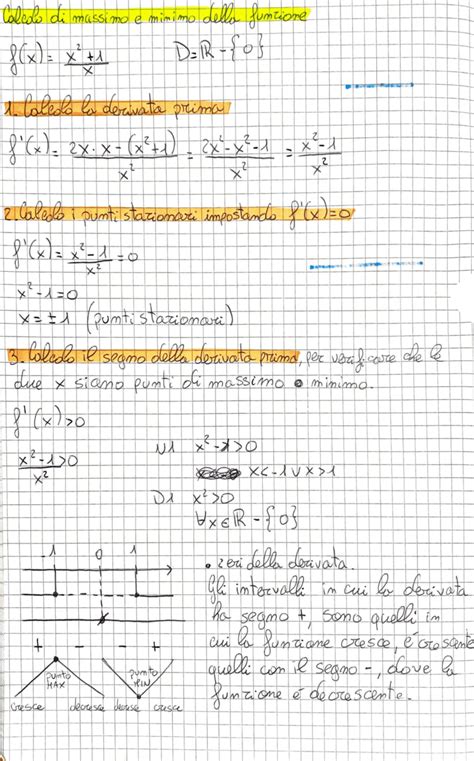 Calcolo di massimo e minimo della funzione
f(x) = x²+1/x D=ℝ-{0}
1. Calcolo la derivata prima
f'(x) = 2x·x-(x²+1)/x² = 2x²-x²-1/x² = x²-1/x²
2. Calcolo i punti stazionari impostando f'(x)=0
f'(x) = x²-1/x² = 0
x²-1=0
x=±1 (punti stazionari)
3. Calcolo il segno della derivata prima, per verificare che le
due x siano punti di massimo o minimo.
f'(x)>0
x²-1/x² >0
N1 x²-1>0
x<-1 ∨ x>1
D1 x²>0
∀x∈ℝ-{0}
-1 0 1
+ - - +
punto MAX
punto MIN
cresce decresce decresce cresce
• zeri della derivata.
Gli intervalli in cui la derivata
ha segno +, sono quelli in
cui la funzione cresce, è crescente
quelli con il segno -, dove la
funzione è decrescente.